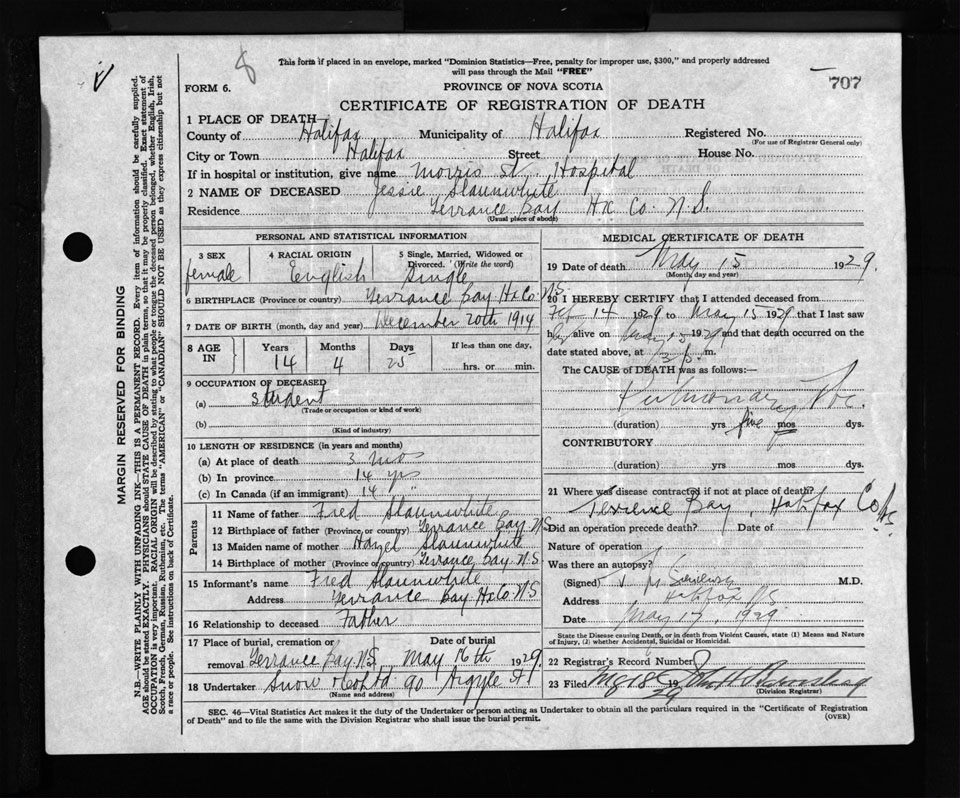 8
This form if placed in an envelope, marked "Dominion Statistics—Free, penalty for improper use, $300," and properly addressed
will pass through the Mail "FREE"
707
FORM 6.
PROVINCE OF NOVA SCOTIA
CERTIFICATE OF REGISTRATION OF DEATH
1 PLACE OF DEATH—
County of Halifax Municipality of Halifax Registered No.
(For use of Registrar General only)
City or Town Halifax Street House No.
If in hospital or institution, give name Morris St. Hospital
2 NAME OF DECEASED Jessie Slaunwhite
Residence Terrance Bay Hx Co. N.S.
(Usual place of abode)
PERSONAL AND STATISTICAL INFORMATION
3 SEX 4 RACIAL ORIGIN 5 Single, Married, Widowed or
Divorced. (Write the word)
female English Single
6 BIRTHPLACE (Province or country) Terrance Bay Hx Co. N.S.
7 DATE OF BIRTH (month, day and year) December 20th 1914
8 AGE IN Years Months Days If less than one day,
14 4 25 hrs. or min.
9 OCCUPATION OF DECEASED
(a) Student
(Trade or occupation or kind of work)
(b)
(Kind of industry)
10 LENGTH OF RESIDENCE (in years and months)
(a) At place of death 3 mos
(b) In province 14 yrs
(c) In Canada (if an immigrant) 14 "
Parents
11 Name of father Fred Slaunwhite
12 Birthplace of father (Province or country) Terrance Bay N.S.
13 Maiden name of mother Hazel Slaunwhite
14 Birthplace of mother (Province or country) Terrance Bay N.S.
15 Informant's name Fred Slaunwhite
Address Terrance Bay Hx Co. N.S
16 Relationship to deceased Father
17 Place of burial, cremation or Date of burial
removal Terrance Bay N.S. May 16th 1929
18 Undertaker Snow & Co Ltd 90 Argyle St
(Name and address)
MEDICAL CERTIFICATE OF DEATH
19 Date of death May 15 1929.
(Month, day and year)
20 I HEREBY CERTIFY that I attended deceased from
Feb 14 1929 to May 15 1929 that I last saw
her alive on May 15 1929 and that death occurred on the
date stated above, at m.
The CAUSE of DEATH was as follows:—
Pulmonary Tbc.
(duration) yrs five mos dys.
CONTRIBUTORY
(duration) yrs mos dys.
21 Where was disease contracted if not at place of death?
Terrence Bay, Halifax Co. NS
Did an operation precede death? Date of
Nature of operation
Was there an autopsy?
(Signed) M.D.
Address Halifax NS
Date May 17, 1929
State the Disease causing Death, or in death from Violent Causes, state (1) Means and Nature
of Injury, (2) whether Accidental, Suicidal or Homicidal.
22 Registrar's Record Number
23 Filed 18 19
(Division Registrar)
SEC. 46—Vital Statistics Act makes it the duty of the Undertaker or person acting as Undertaker to obtain all the particulars required in the "Certificate of Registration
of Death" and to file the same with the Division Registrar who shall issue the burial permit.
(OVER)
MARGIN RESERVED FOR BINDING
N.B.—WRITE PLAINLY WITH UNFADING INK—THIS IS A PERMANENT RECORD. Every item of information should be carefully supplied.
AGE should be stated EXACTLY. PHYSICIANS should STATE CAUSE OF DEATH in plain terms, so that it may be properly classified. Exact statement of
OCCUPATION is very important. RACIAL ORIGIN will be described by stating to what people or tongue the deceased person belonged, whether English, Irish,
Scotch, French, German, Russian, Ruthenian, etc. The terms "AMERICAN" or "CANADIAN" SHOULD NOT BE USED as they express citizenship but not
a race or people. See instructions on back of Certificate.